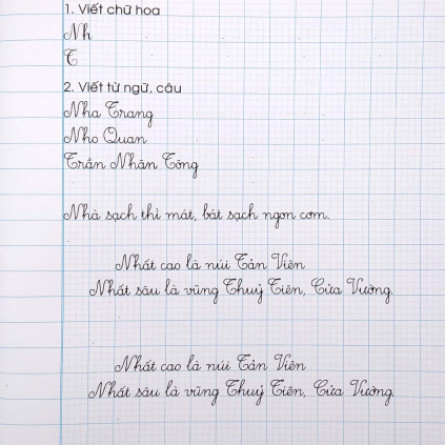 1. Viết chữ hoa
Nh
T
2. Viết từ ngữ, câu
Nha Trang
Nho Quan
Trần Nhân Tông
Nhà sạch thì mát, bát sạch ngon cơm.
Nhất cao là núi Tản Viên
Nhất sâu là vũng Thuỷ Tiên, Cửa Vường.
Nhất cao là núi Tản Viên
Nhất sâu là vũng Thuỷ Tiên, Cửa Vường.